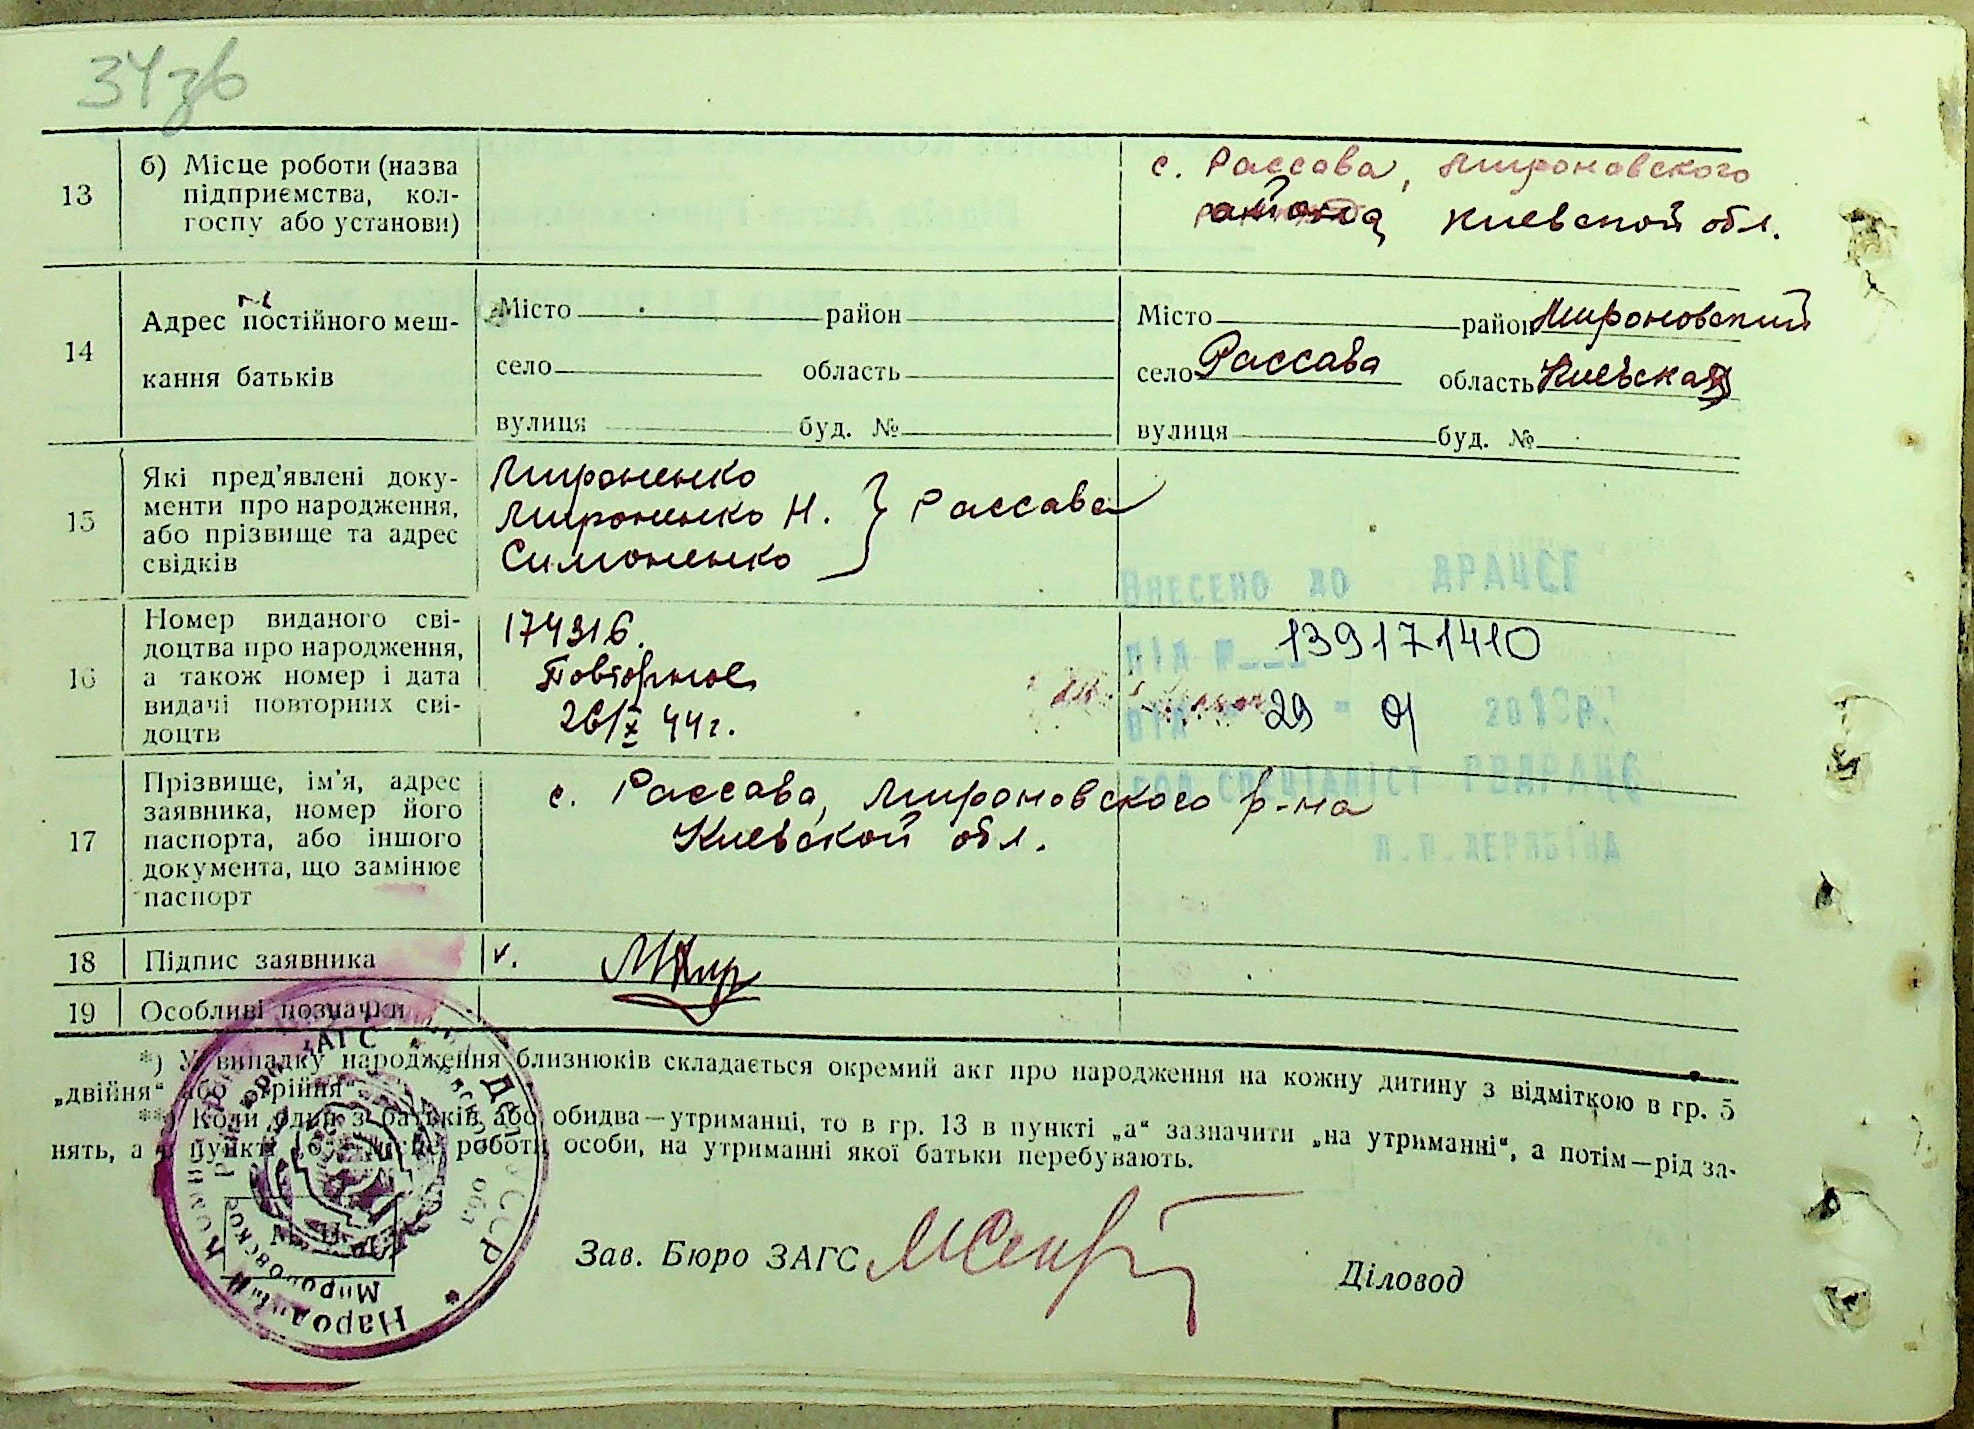 34зв
13
б) Місце роботи (назва
підприємства, кол-
госпу або установи)
с. Рассава, Мироновского
района Киевской обл.
14
Адрес постійного меш-
кання батьків
Місто район
село область
вулиця буд. №
Місто район Мироновский
село Рассава область Киевская
вулиця буд. №
15
Які пред'явлені доку-
менти про народження,
або прізвище та адрес
свідків
Мироненко
Мироненко Н. } Рассава
Симоненко
16
Номер виданого сві-
доцтва про народження,
а також номер і дата
видачі повторних сві-
доцтв
174316.
Повторное
26/X 44г.
Внесено до ДРАЦСГ
від № 139171410
від 29 01
17
Прізвище, ім'я, адрес
заявника, номер його
паспорта, або іншого
документа, що замінює
паспорт
с. Рассава, Мироновского р-на
Киевской обл.
спеціаліст РВДРАЦС
18
Підпис заявника
v.
19
Особливі позначки
*) У випадку народження близнюків складається окремий акт про народження на кожну дитину з відміткою в гр. 5
„двійня“ або „трійня“.
**) Коли один з батьків або обидва—утриманці, то в гр. 13 в пункті „а“ зазначити „на утриманні“, а потім—рід за-
нять, а в пункті „б“ місце роботи особи, на утриманні якої батьки перебувають.
Зав. Бюро ЗАГС
Діловод